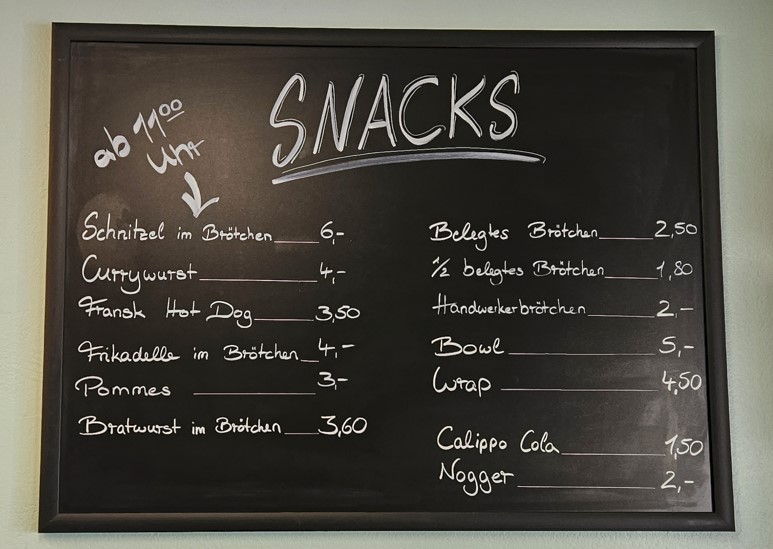 SNACKS
ab 11⁰⁰
Uhr
Schnitzel im Brötchen 6,-
Currywurst 4,-
Fransk Hot Dog 3,50
Frikadelle im Brötchen 4,-
Pommes 3,-
Bratwurst im Brötchen 3,60
Belegtes Brötchen 2,50
1/2 belegtes Brötchen 1,80
Handwerkerbrötchen 2,-
Bowl 5,-
Wrap 4,50
Calippo Cola 1,50
Nogger 2,-